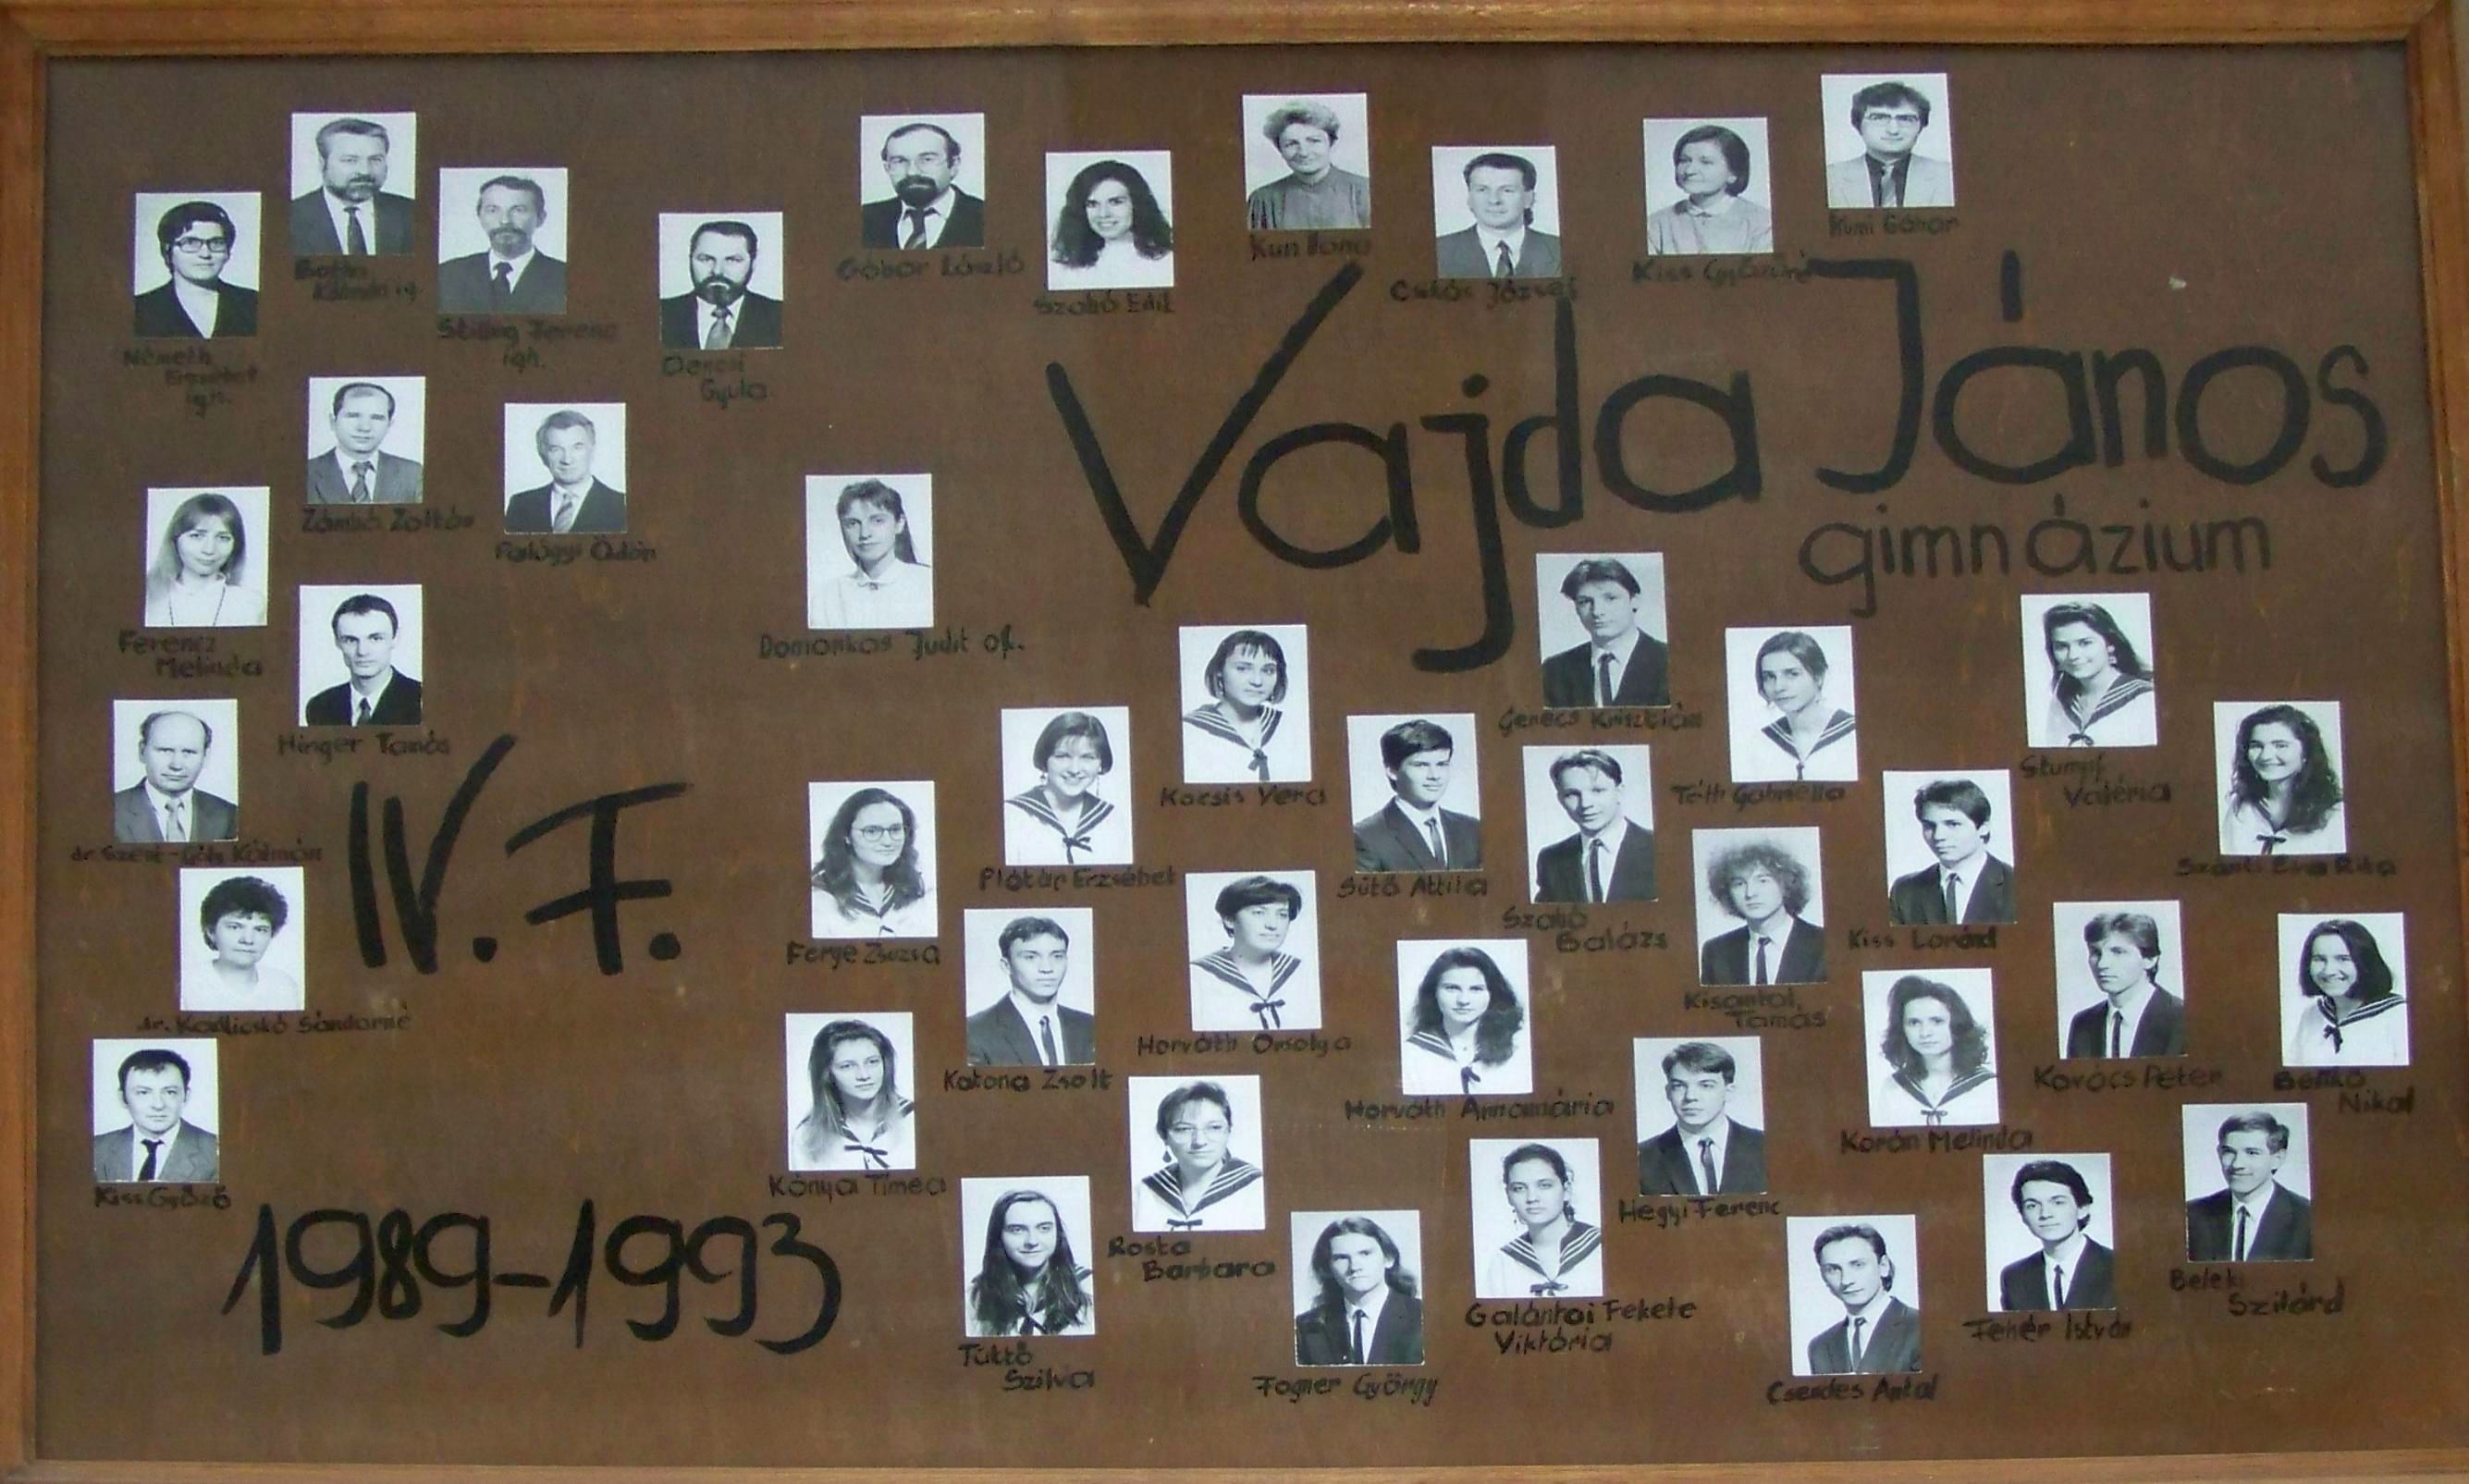 Kumi Gábor
Kun Ilona
Gábor László
Szabó Edit
Csák József
Kiss
Kálmán ig.
Stilling Ferenc
igh.
Németh
Erzsébet
igh.
Dencsi
Gyula
Vajda János
gimnázium
Zámbó Zoltán
Faludgyi Ödön
Ferencz
Melinda
Domonkos Judit of.
Hinger Tamás
Gerecs Krisztián
Kocsis Vera
Tóth Gabriella
Stumpf
Valéria
dr. Szent-Gály Kálmán
IV. F.
Plótár Erzsébet
Sütő Attila
Szántó Éva Rita
Ferye Zsuzsa
Szabó
Balázs
Kiss Loránd
dr. Karlicskó Sándorné
Kisantal
Tamás
Horváth Orsolya
Katona Zsolt
Horváth Annamária
Kovács Péter
Benkő
Nikol
Korán Melinda
Kiss Győző
Kónya Tímea
Hegyi Ferenc
1989-1993
Rosta
Barbara
Galántai Fekete
Viktória
Beleki
Szilárd
Fehér István
Tüttő
Szilvia
Fogner György
Csendes Antal